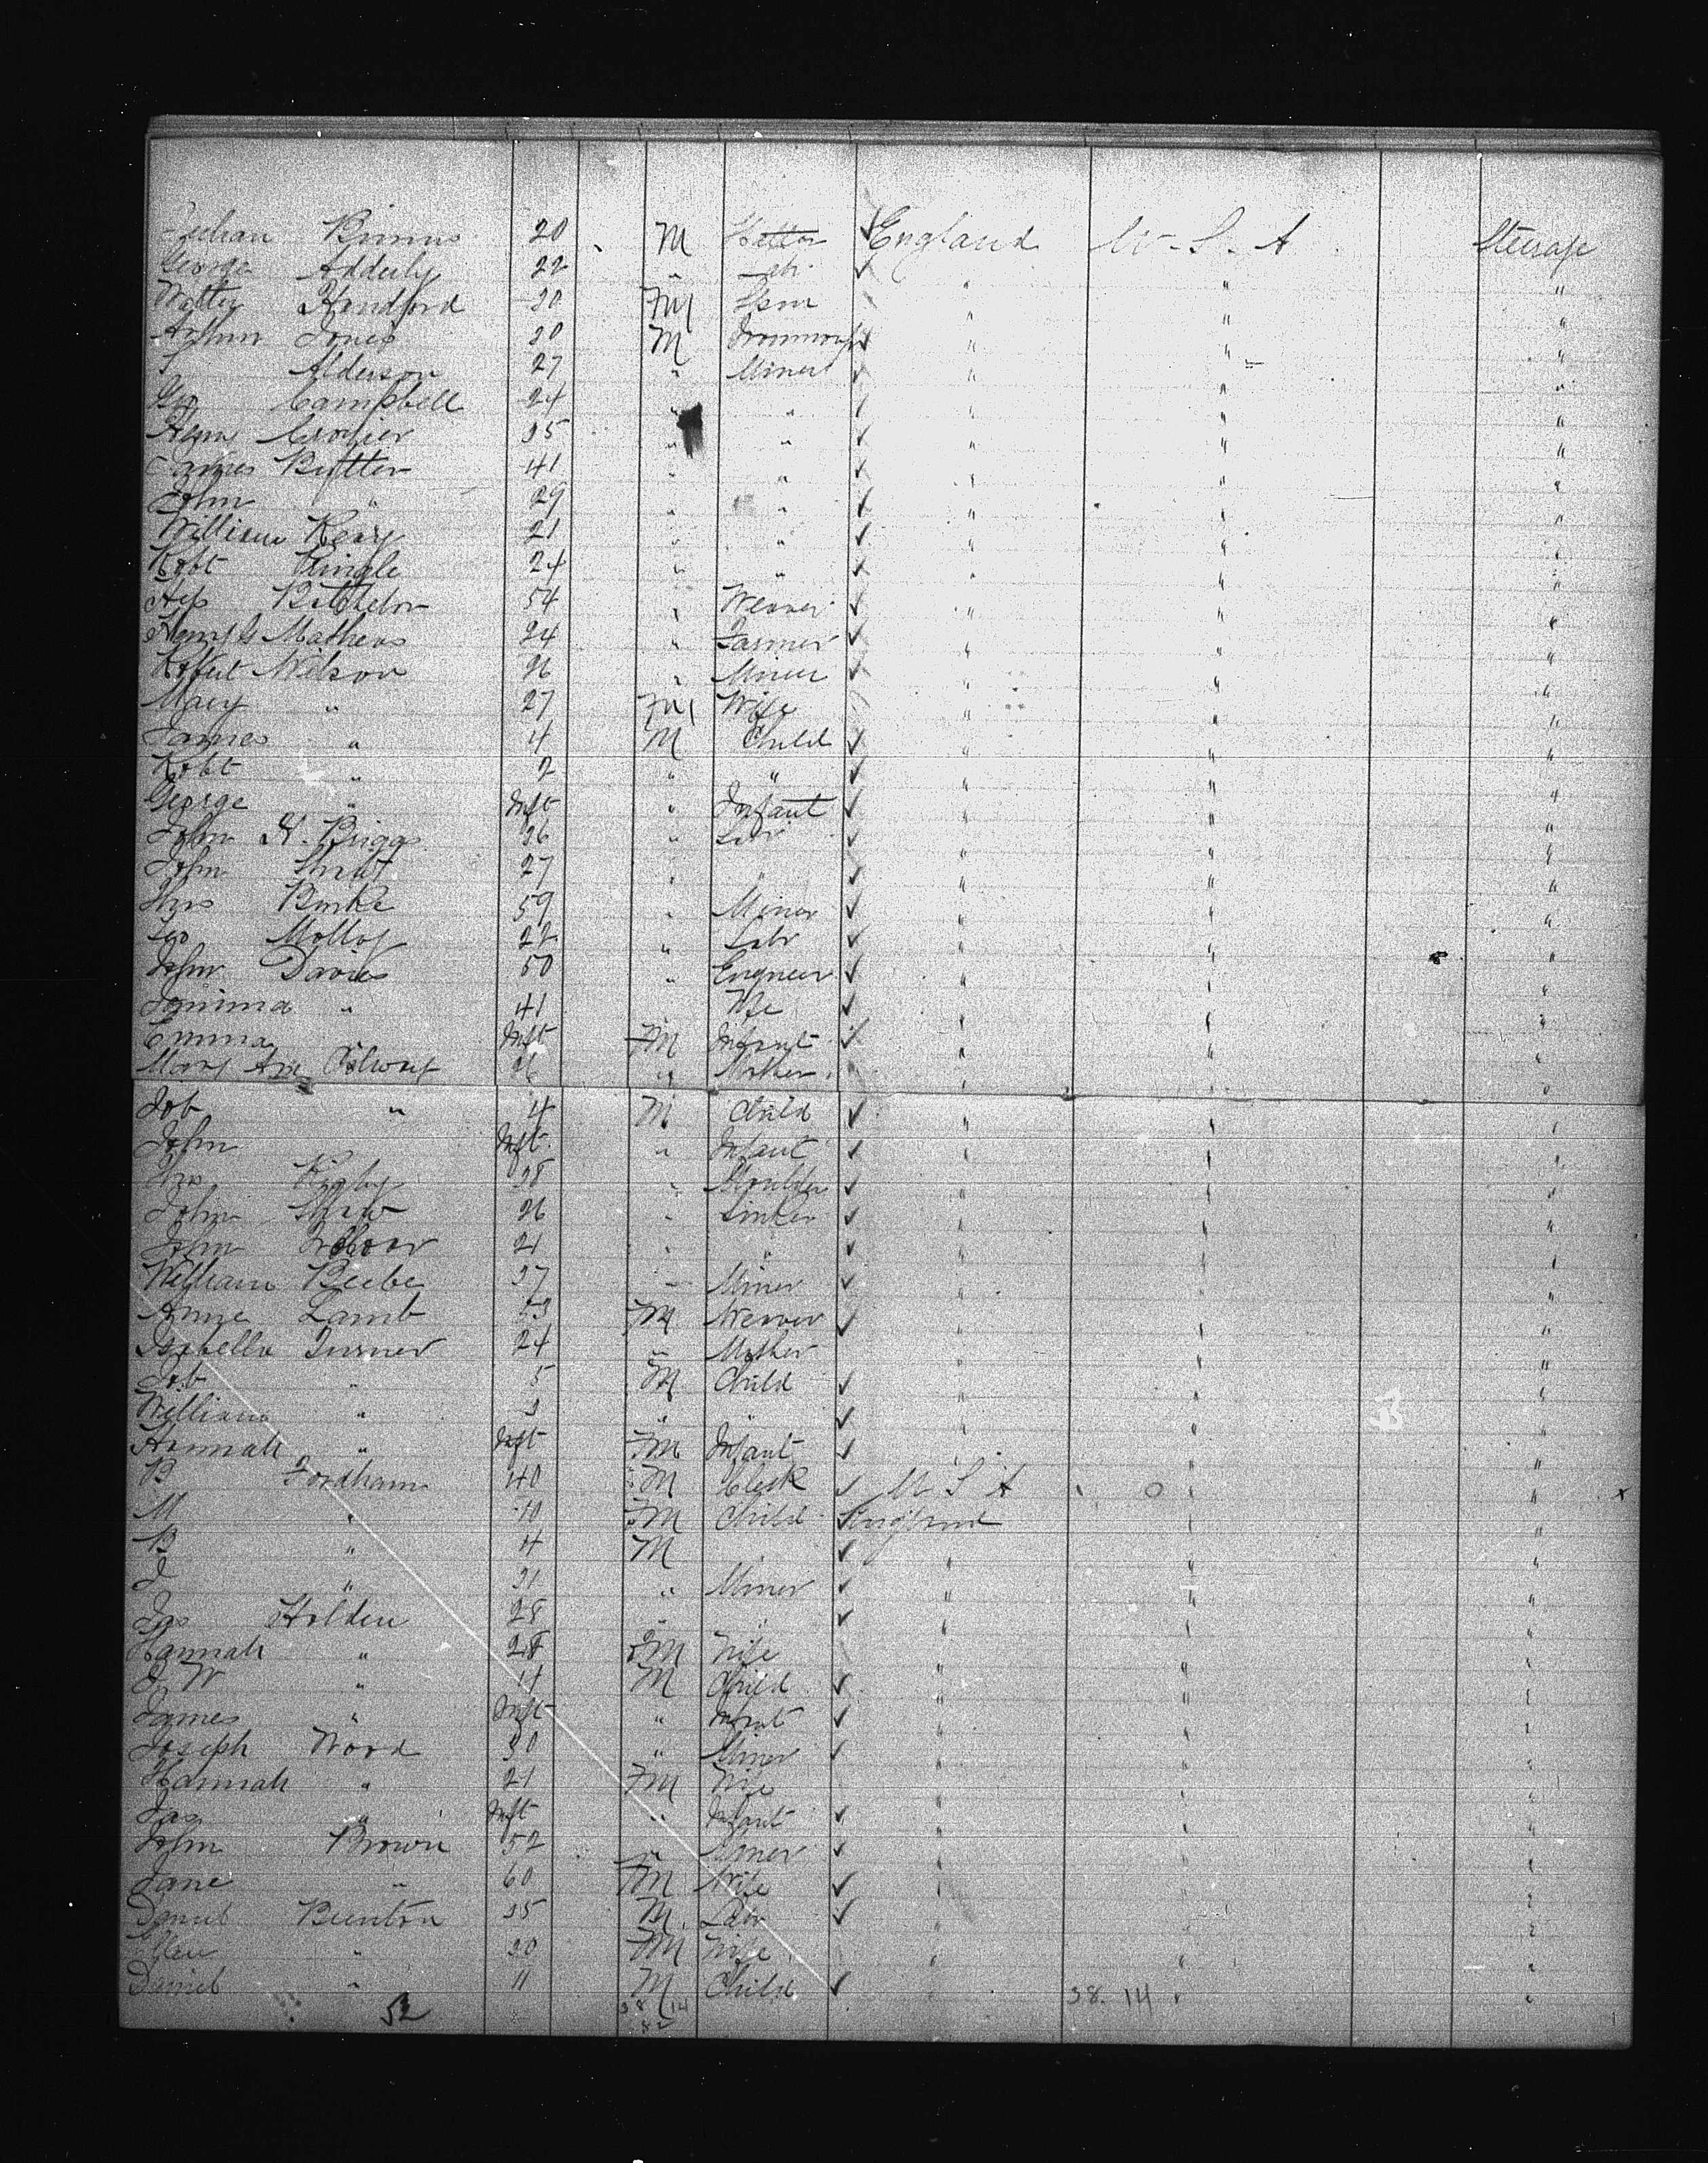 Binns 20 M Hatter England U.S.A Steerage
George Adderly 22 " Labr " " "
Handford 20 Fm " " "
Arthur Jones 20 M " " "
Alderson 27 " Miner " " "
Geo Campbell 24 " " " " "
Crozier " " " " "
James Butter 41 " " " " "
John " 29 " " " " "
William Keary 21 " " " " "
Robt 24 " " " " "
Batchelor 54 " Weaver " " "
Mathews 24 " Farmer " " "
Robert Wilson 26 " Miner " " "
Mary " 27 Fm Wife " " "
James " 4 M Child " " "
Robt " 2 " " " " "
George " Inft " Infant " " "
John H. Briggs 26 " Labr " " "
John 27 " " " " "
Thos Burke 59 " Miner " " "
Geo Molloy 22 " Labr " " "
John Davies 50 " Engineer " " "
Jemima " 41 Wfe " " "
Emma Inft Fm Infant " " "
Mary Ann 26 " Mother " " "
Job " 4 M Child " " "
John Inft " Infant " " "
Rigby 28 " Moulder " " "
John Shaw 26 " Sinker " " "
John 21 " " " " "
William Beebe 27 " Miner " " "
Annie Lamb 53 Fm Weaver " " "
Isabella Turner 24 " Mother " " "
Job " 5 M Child " " "
William " 3 " " " " "
Hannah " Inft Fm Infant " " "
B Fordham 40 M Clerk U S A O " x
M " 10 Fm Child England " "
B " 4 M " " "
J " 21 " Miner " " "
Jas Holden 28 " " " " "
Hannah " 28 Fm Wife " " "
J W " 4 M Child " " "
James " Inft " Infant " " "
Joseph Wood 30 " Miner " " "
Hannah " 21 Fm Wife " " "
Jas " Inft " Infant " " "
John Brown 52 " Miner " " "
Jane " 60 Fm Wife " " "
Daniel Bunton 35 M Labr " " "
Ellen " 30 Fm Wife " " "
Daniel " 11 M Child 38.14 " "
52 38 14